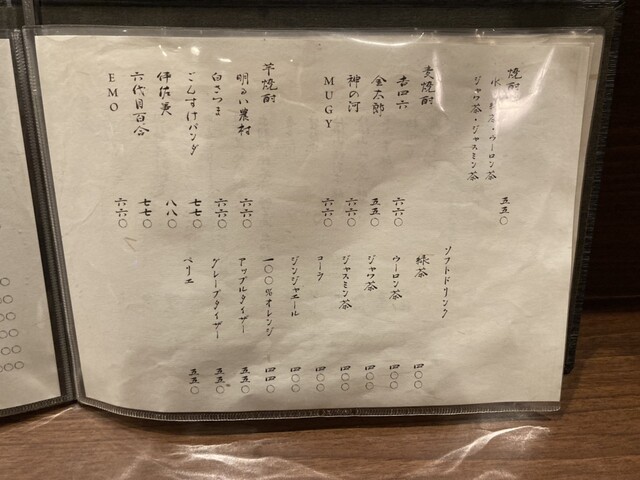 焼酎
水・緑茶・ウーロン茶
ジャワ茶・ジャスミン茶 五五〇
麦焼酎
吉四六 六六〇
金太郎 五五〇
神の河 六六〇
MUGY 六六〇
芋焼酎
明るい農村 六六〇
白さつま 六六〇
ごんすけパンダ 七七〇
伊佐美 八八〇
六代目百合 七七〇
EMO 六六〇
ソフトドリンク
緑茶 四〇〇
ウーロン茶 四〇〇
ジャワ茶 四〇〇
ジャスミン茶 四〇〇
コーラ 四〇〇
ジンジャエール 四〇〇
一〇〇%オレンジ 四四〇
アップルタイザー 五五〇
グレープタイザー 五五〇
ペリエ 五五〇